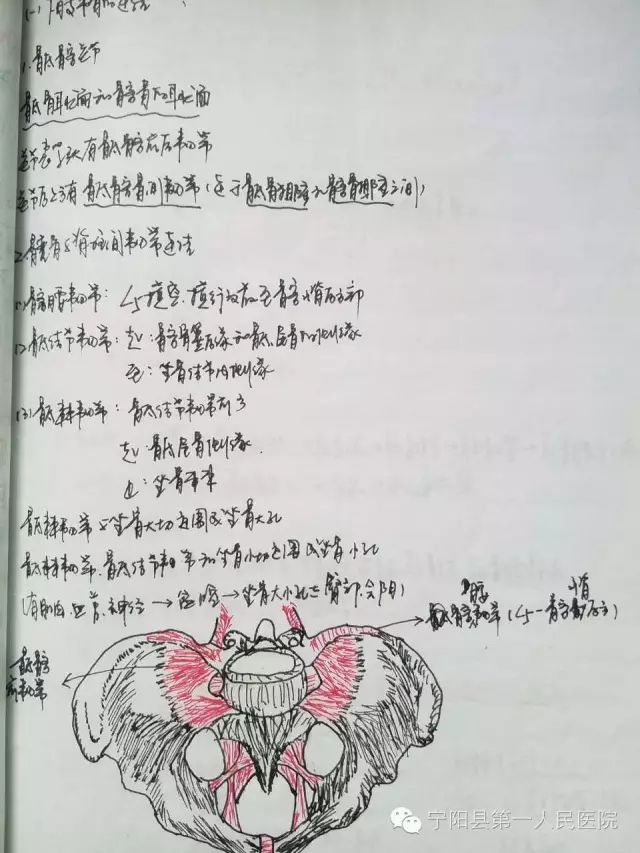 (一)下肢带骨的连结
1.骶髂关节
骶骨耳状面和髂骨的耳状面
关节表面有骶髂前后韧带
关节后上方有骶髂骨间韧带(连于骶骨粗隆和髂骨粗隆之间)
2.髋骨与脊柱间韧带连结
(1)髂腰韧带:L5横突.横行放散至髂嵴后上部
(2)骶结节韧带:起:髂骨翼后缘和骶、尾骨的侧缘
至:坐骨结节内侧缘
(3)骶棘韧带:骶结节韧带前方
起:骶尾骨侧缘.
止:坐骨棘
骶棘韧带与坐骨大切迹围成坐骨大孔
骶棘韧带.骶结节韧带和坐骨小切迹围成坐骨小孔
(有肌肉、血管、神经→盆腔→坐骨大小孔→臀部、会阴)
腰 嵴
髂韧带(L5—髂后上)
骶髂前韧带
宁阳县第一人民医院